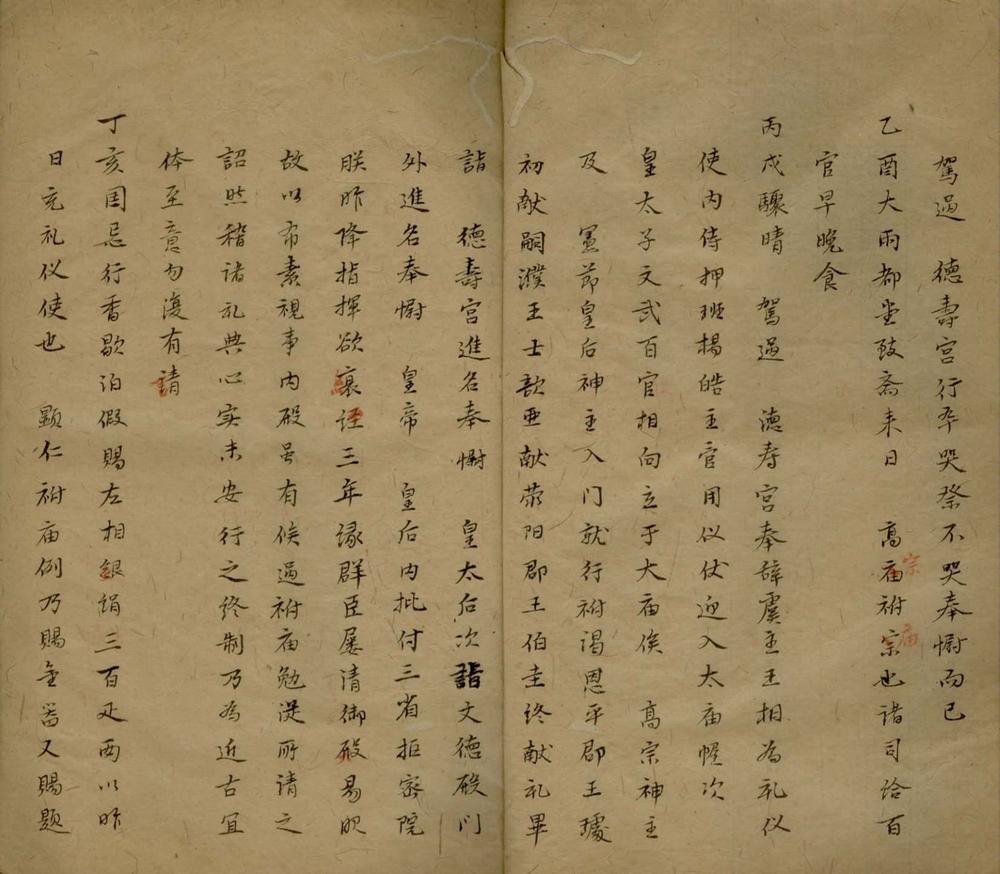 駕過　德壽宮行卒哭祭不哭奉慰而已
乙酉大雨都堂致斎来日　髙庙祔宗也诸司给百
官早晚食
丙戌驟晴　駕過　德寿宮奉辞虞主王相為礼仪
使内侍押班楊皓主官用仪仗迎入太庙幄次
皇太子文武百官相向立于大庙俟　髙宗神主
及　憲節皇后神主入门就行祔谒恩平郡王璩
初献嗣濮王士歆亜献荥阳郡王伯圭终献礼畢
詣　德壽宮進名奉慰　皇太后次詣文德殿门
外進名奉慰　皇帝　皇后内批付三省拒密院
朕昨降指揮欲衰绖三年缘群臣屡清御殿易服
故以布素視事内殿虽有俟過祔庙勉从所请之
詔然稽诸礼典心实未安行之终制乃為近古宜
体至意勿復有請
丁亥国忌行香歇泊假賜左相銀绢三百疋两以昨
日充礼仪使也　顕仁祔庙例乃賜金器又賜题
宗
庙